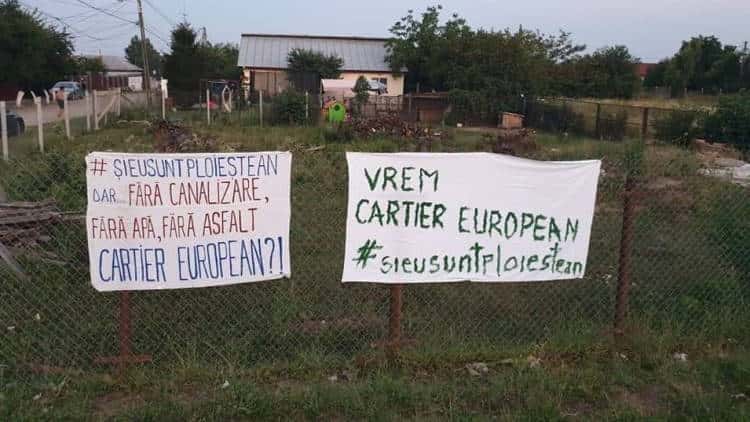 # ȘIEUSUNTPLOIEȘTEAN
DAR FĂRĂ CANALIZARE,
FĂRĂ APĂ, FĂRĂ ASFALT
CARTIER EUROPEAN?!
VREM
CARTIER EUROPEAN
#sieusuntploieștean